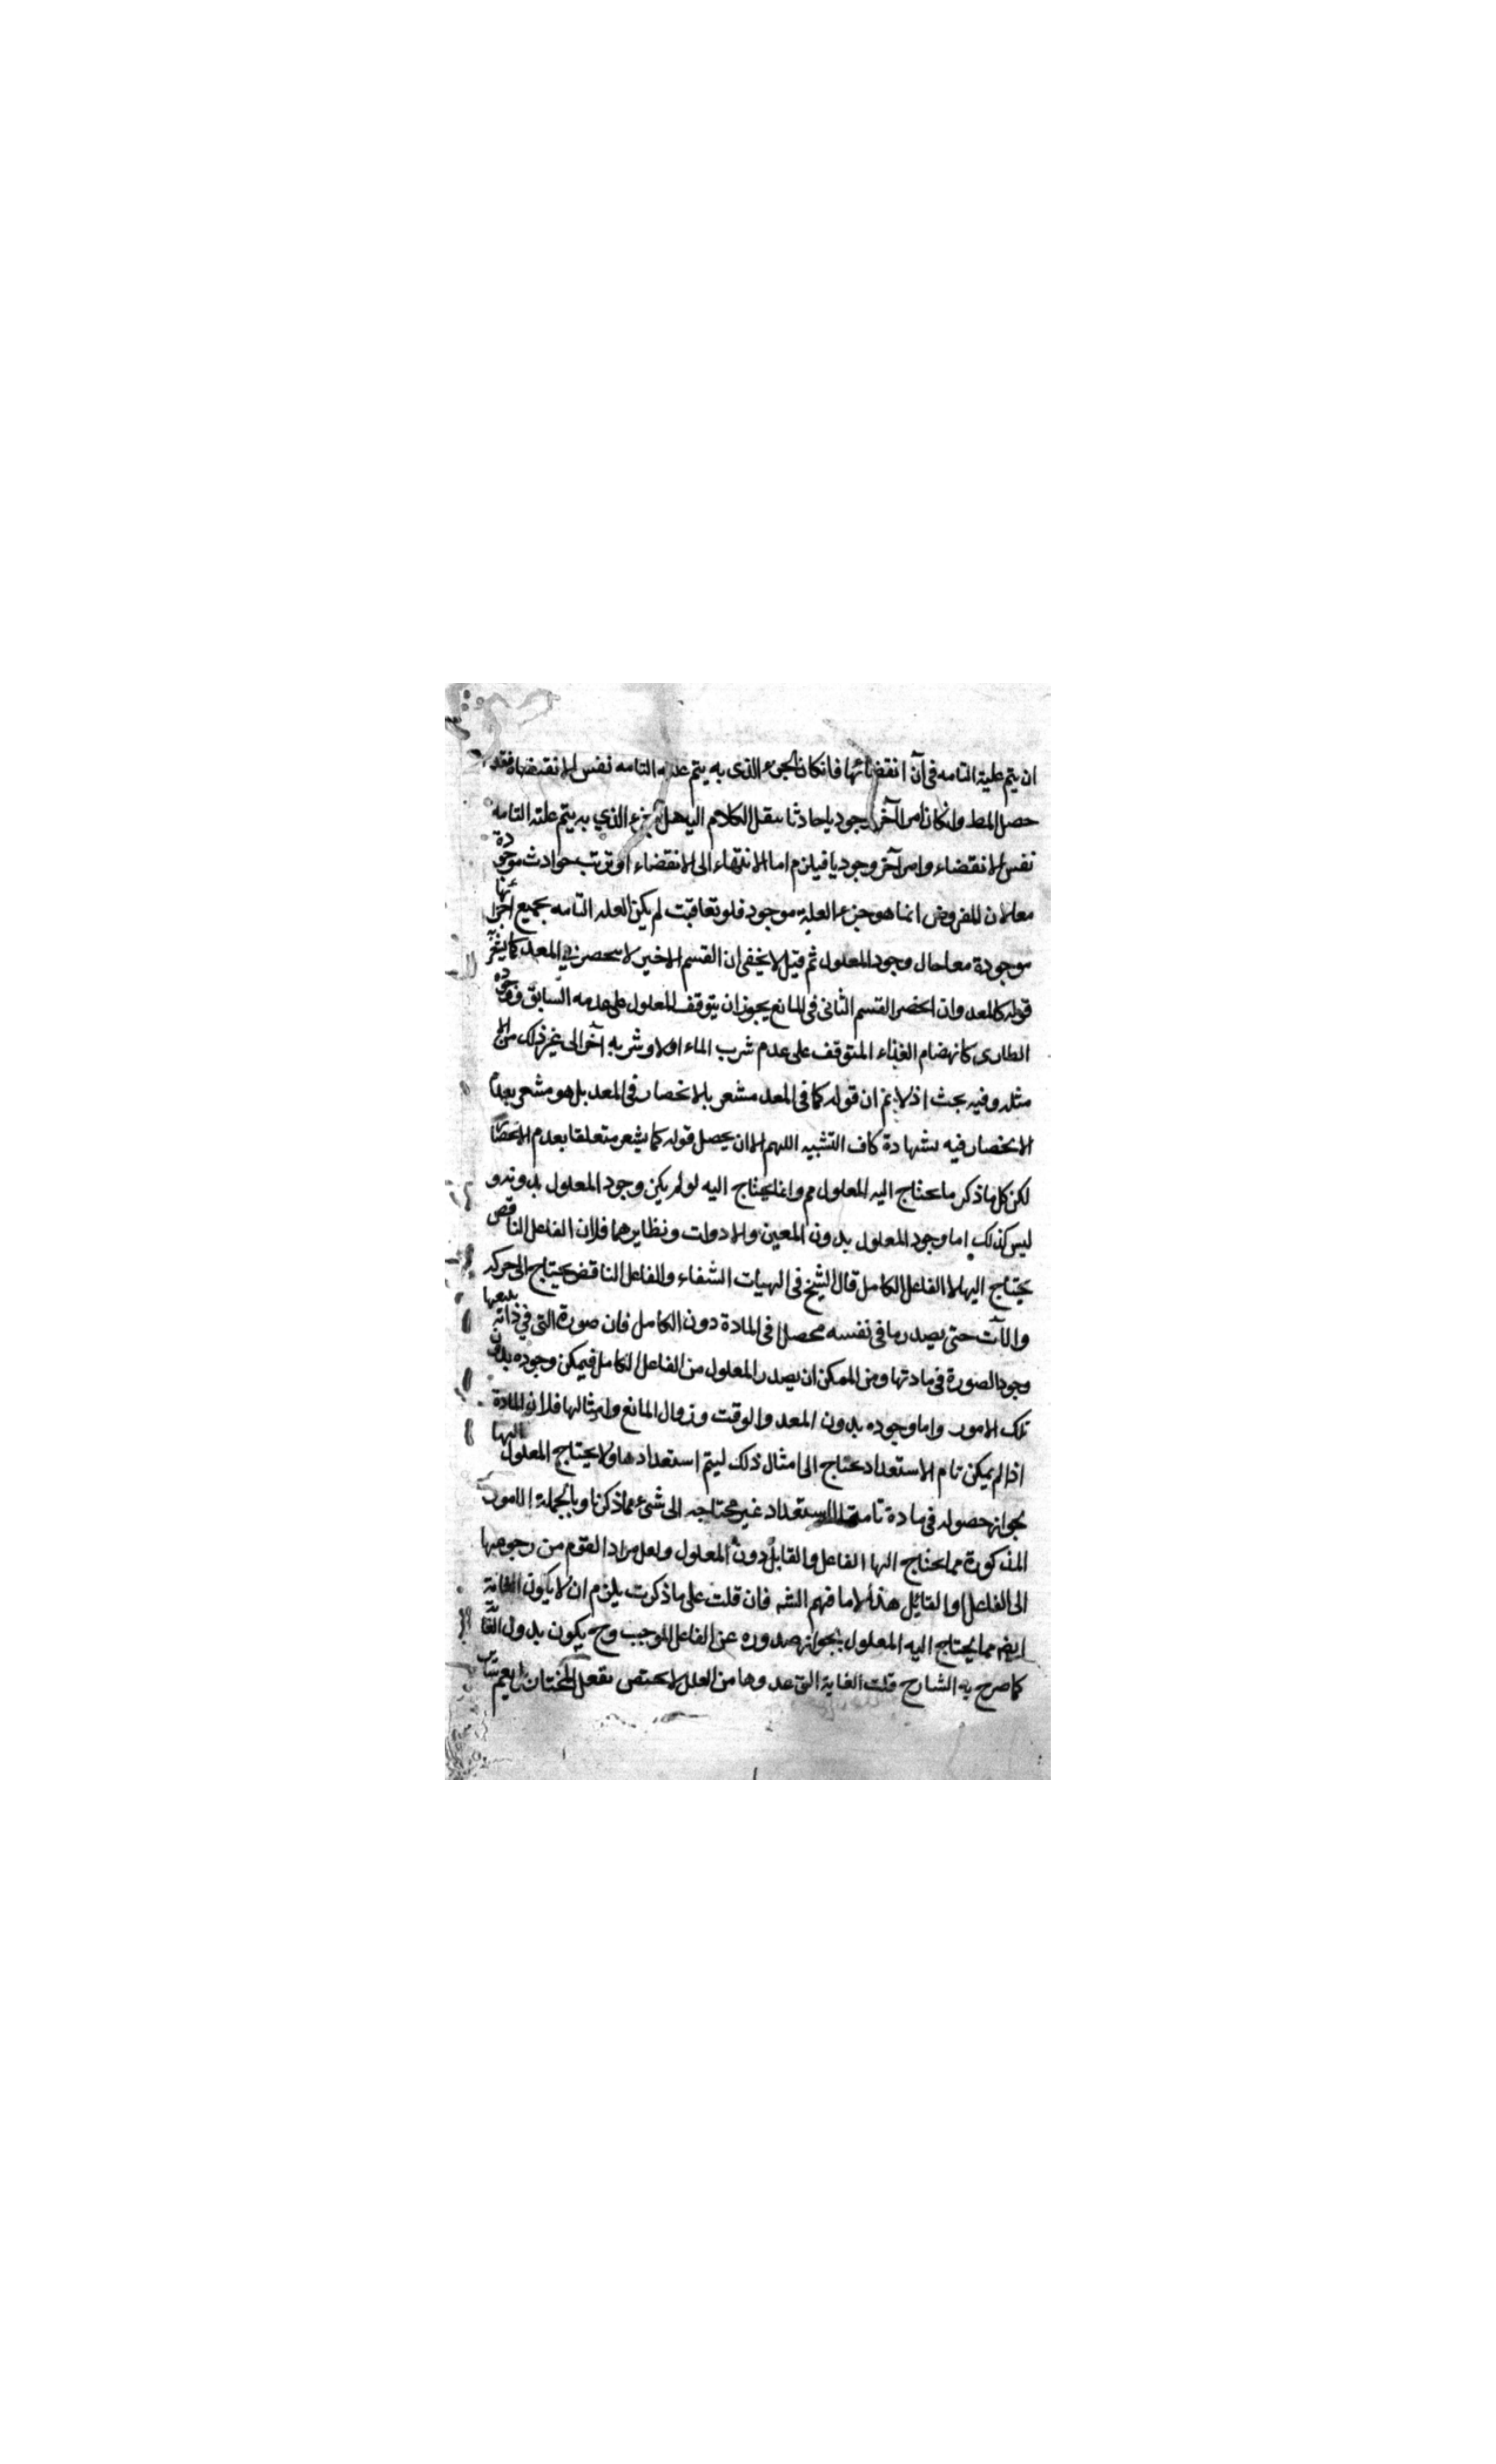 ان يتم علية التامه فى آن انقضائها فانكان الجزء الذى به يتم علته التامه نفس الانقضاء فقد
حصل المط وانكان امرا آخر وجوديا حادثا ننقل الكلام اليه هل جزء الذي به يتم علته التامه
نفس الانقضاء وامر آخر وجوديا فيلزم اما الانتهاء الى الانقضاء او ترتب حوادث موجودة
معا لان المفروض انما هو جزء العلية موجود فلو تعاقبت لم يكن العلة التامه بجميع اجزائها
موجودة معا حال وجود المعلول ثم قيل لا يخفى ان القسم الاخير لا ينحصر في المعد كما يشعر
قوله كالمعد وان انحصر القسم الثانى فى المانع يجوز ان يتوقف المعلول على عدمه السابق ووجوده
الطارى كانهضام الغذاء المتوقف على عدم شرب الماء اولا وشربه آخرا الى غير ذلك من الا
مثله وفيه بحث اذ لا نم ان قوله كما فى المعد مشعر بالانحصار فى المعد بل هو مشعر بعدم
الانحصار فيه بشهادة كاف التشبيه اللهم الا ان يحصل قوله كما يشعر متعلقا بعدم الانحصار
لكن كل ما ذكر ما يحتاج اليه المعلول مم وانما يحتاج اليه لو لم يكن وجود المعلول بدونه و
ليس كذلك اما وجود المعلول بدون المعين والادوات ونظايرهما فلان الفاعل الناقص
يحتاج اليها لا الفاعل الكامل قال الشيخ فى الهيات الشفاء والفاعل الناقص يحتاج الى حركة
والآت حتى يصدر ما فى نفسه محصلا فى المادة دون الكامل فان صورة التى في ذاته يتبعها
وجود الصورة فى مادتها ومن الممكن ان يصدر المعلول من الفاعل الكامل فيمكن وجوده بدون
تلك الامور واما وجوده بدون المعد والوقت وزوال المانع وامثالها فلان المادة
اذا لم يكن تام الاستعداد يحتاج الى امثال ذلك ليتم استعدادها ولا يحتاج المعلول اليها
لجواز حصوله فى مادة تامة الاستعداد غير محتاجه الى شئ مما ذكرنا وبالجملة الامور
المذكورة مما يحتاج اليها الفاعل والقابل دون المعلول ولعل مراد القوم من رجوعها
الى الفاعل والقابل هذا لا ما فهم الشه فان قلت على ما ذكرت يلزم ان لا يكون الغاية
ايضم مما يحتاج اليه المعلول لجواز صدوره عن الفاعل الموجب وح يكون بدون الغاية
كما صرح به الشارح قلت الغاية التى عدوها من العلل لا يختص بفعل المختار